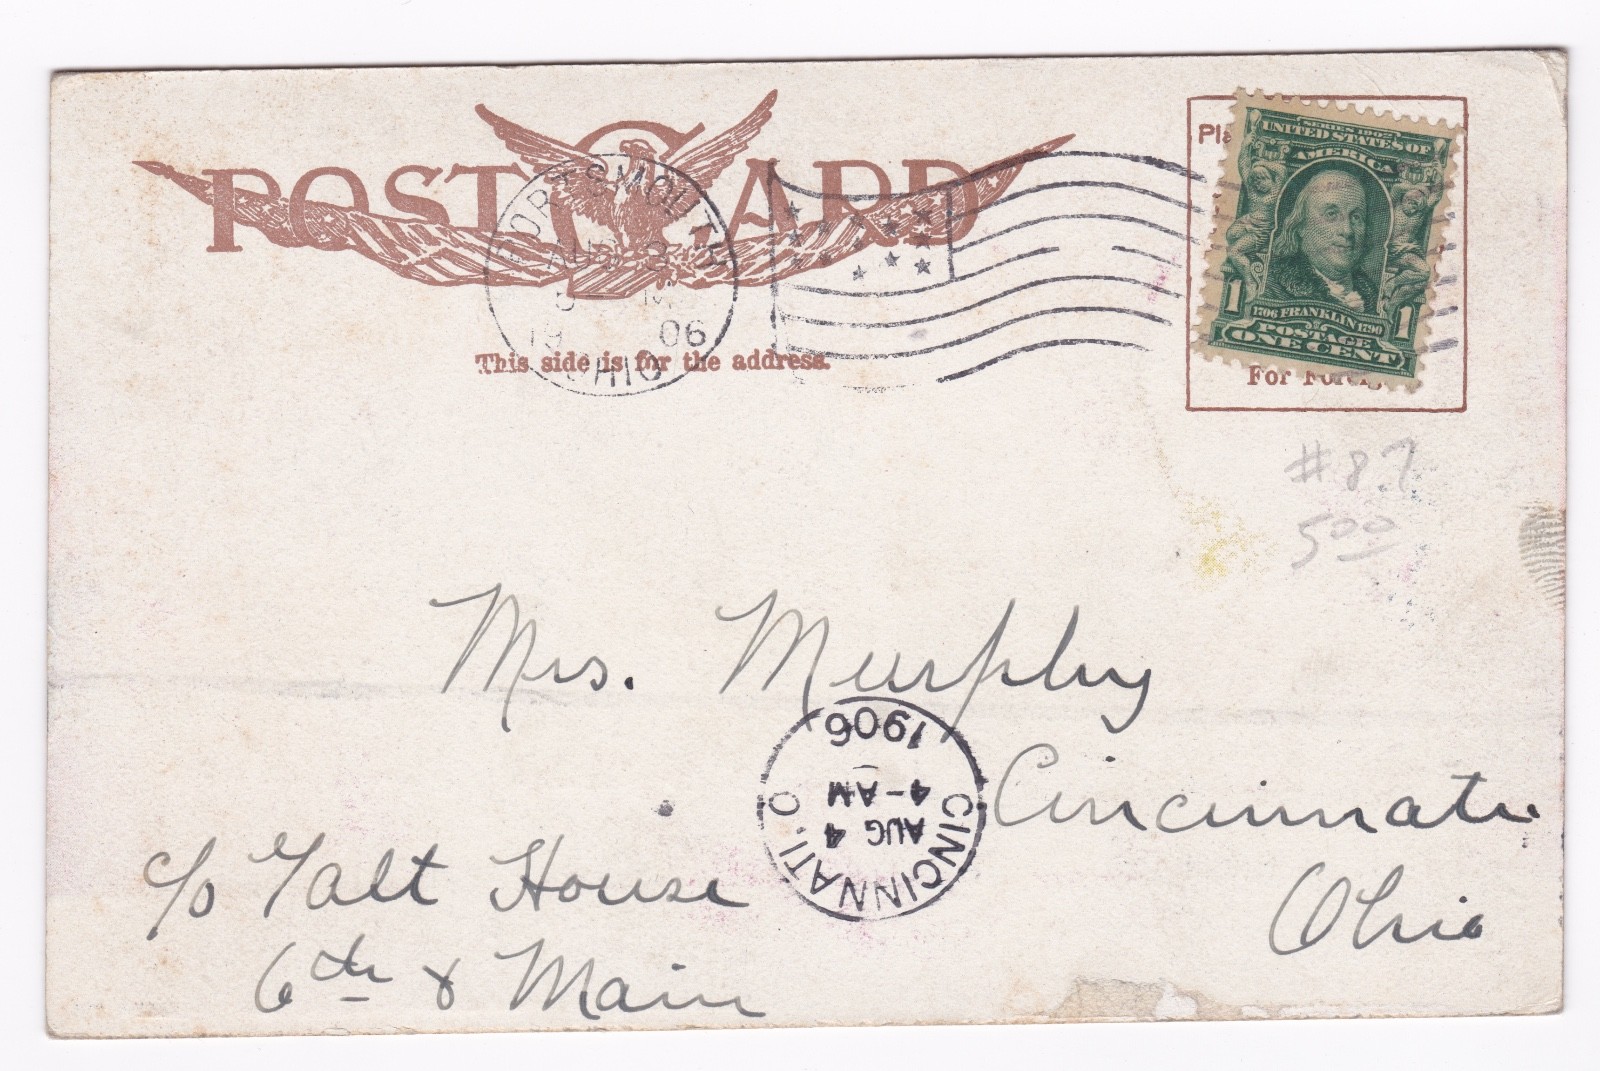 POST CARD
PORTSMOUTH
AUG 3
5 M
19 06
OHIO
This side is for the address.
Pla
SERIES 1902
UNITED STATES OF
AMERICA
1 1
1706 FRANKLIN 1790
POSTAGE
ONE CENT
For Foreig
#87
5.00
Mrs. Murphy
Cincinnati
Ohio
c/o Galt House
6th & Main
CINCINNATI, O.
AUG 4
4-AM
1906